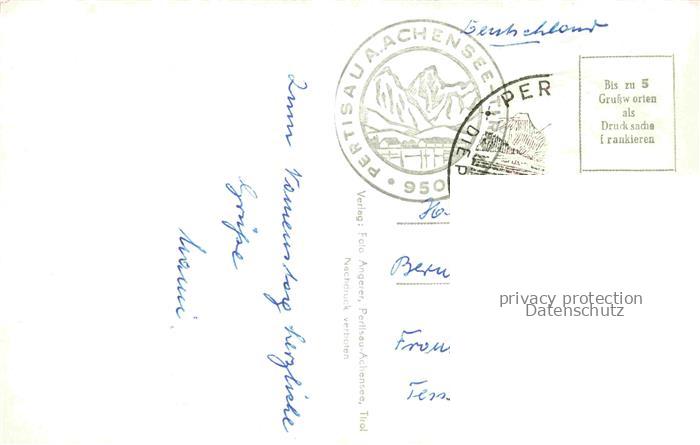 Zum Namenstag herzliche
Grüße
Mami.
Verlag: Foto Angerer, Pertisau-Achensee, Tirol
Nachdruck verboten
PERTISAU A. ACHENSEE-TIROL
950
Deutschland
PER
DIE P
Bis zu 5
Grußworten
als
Drucksache
frankieren
Bern
Frau
privacy protection
Datenschutz